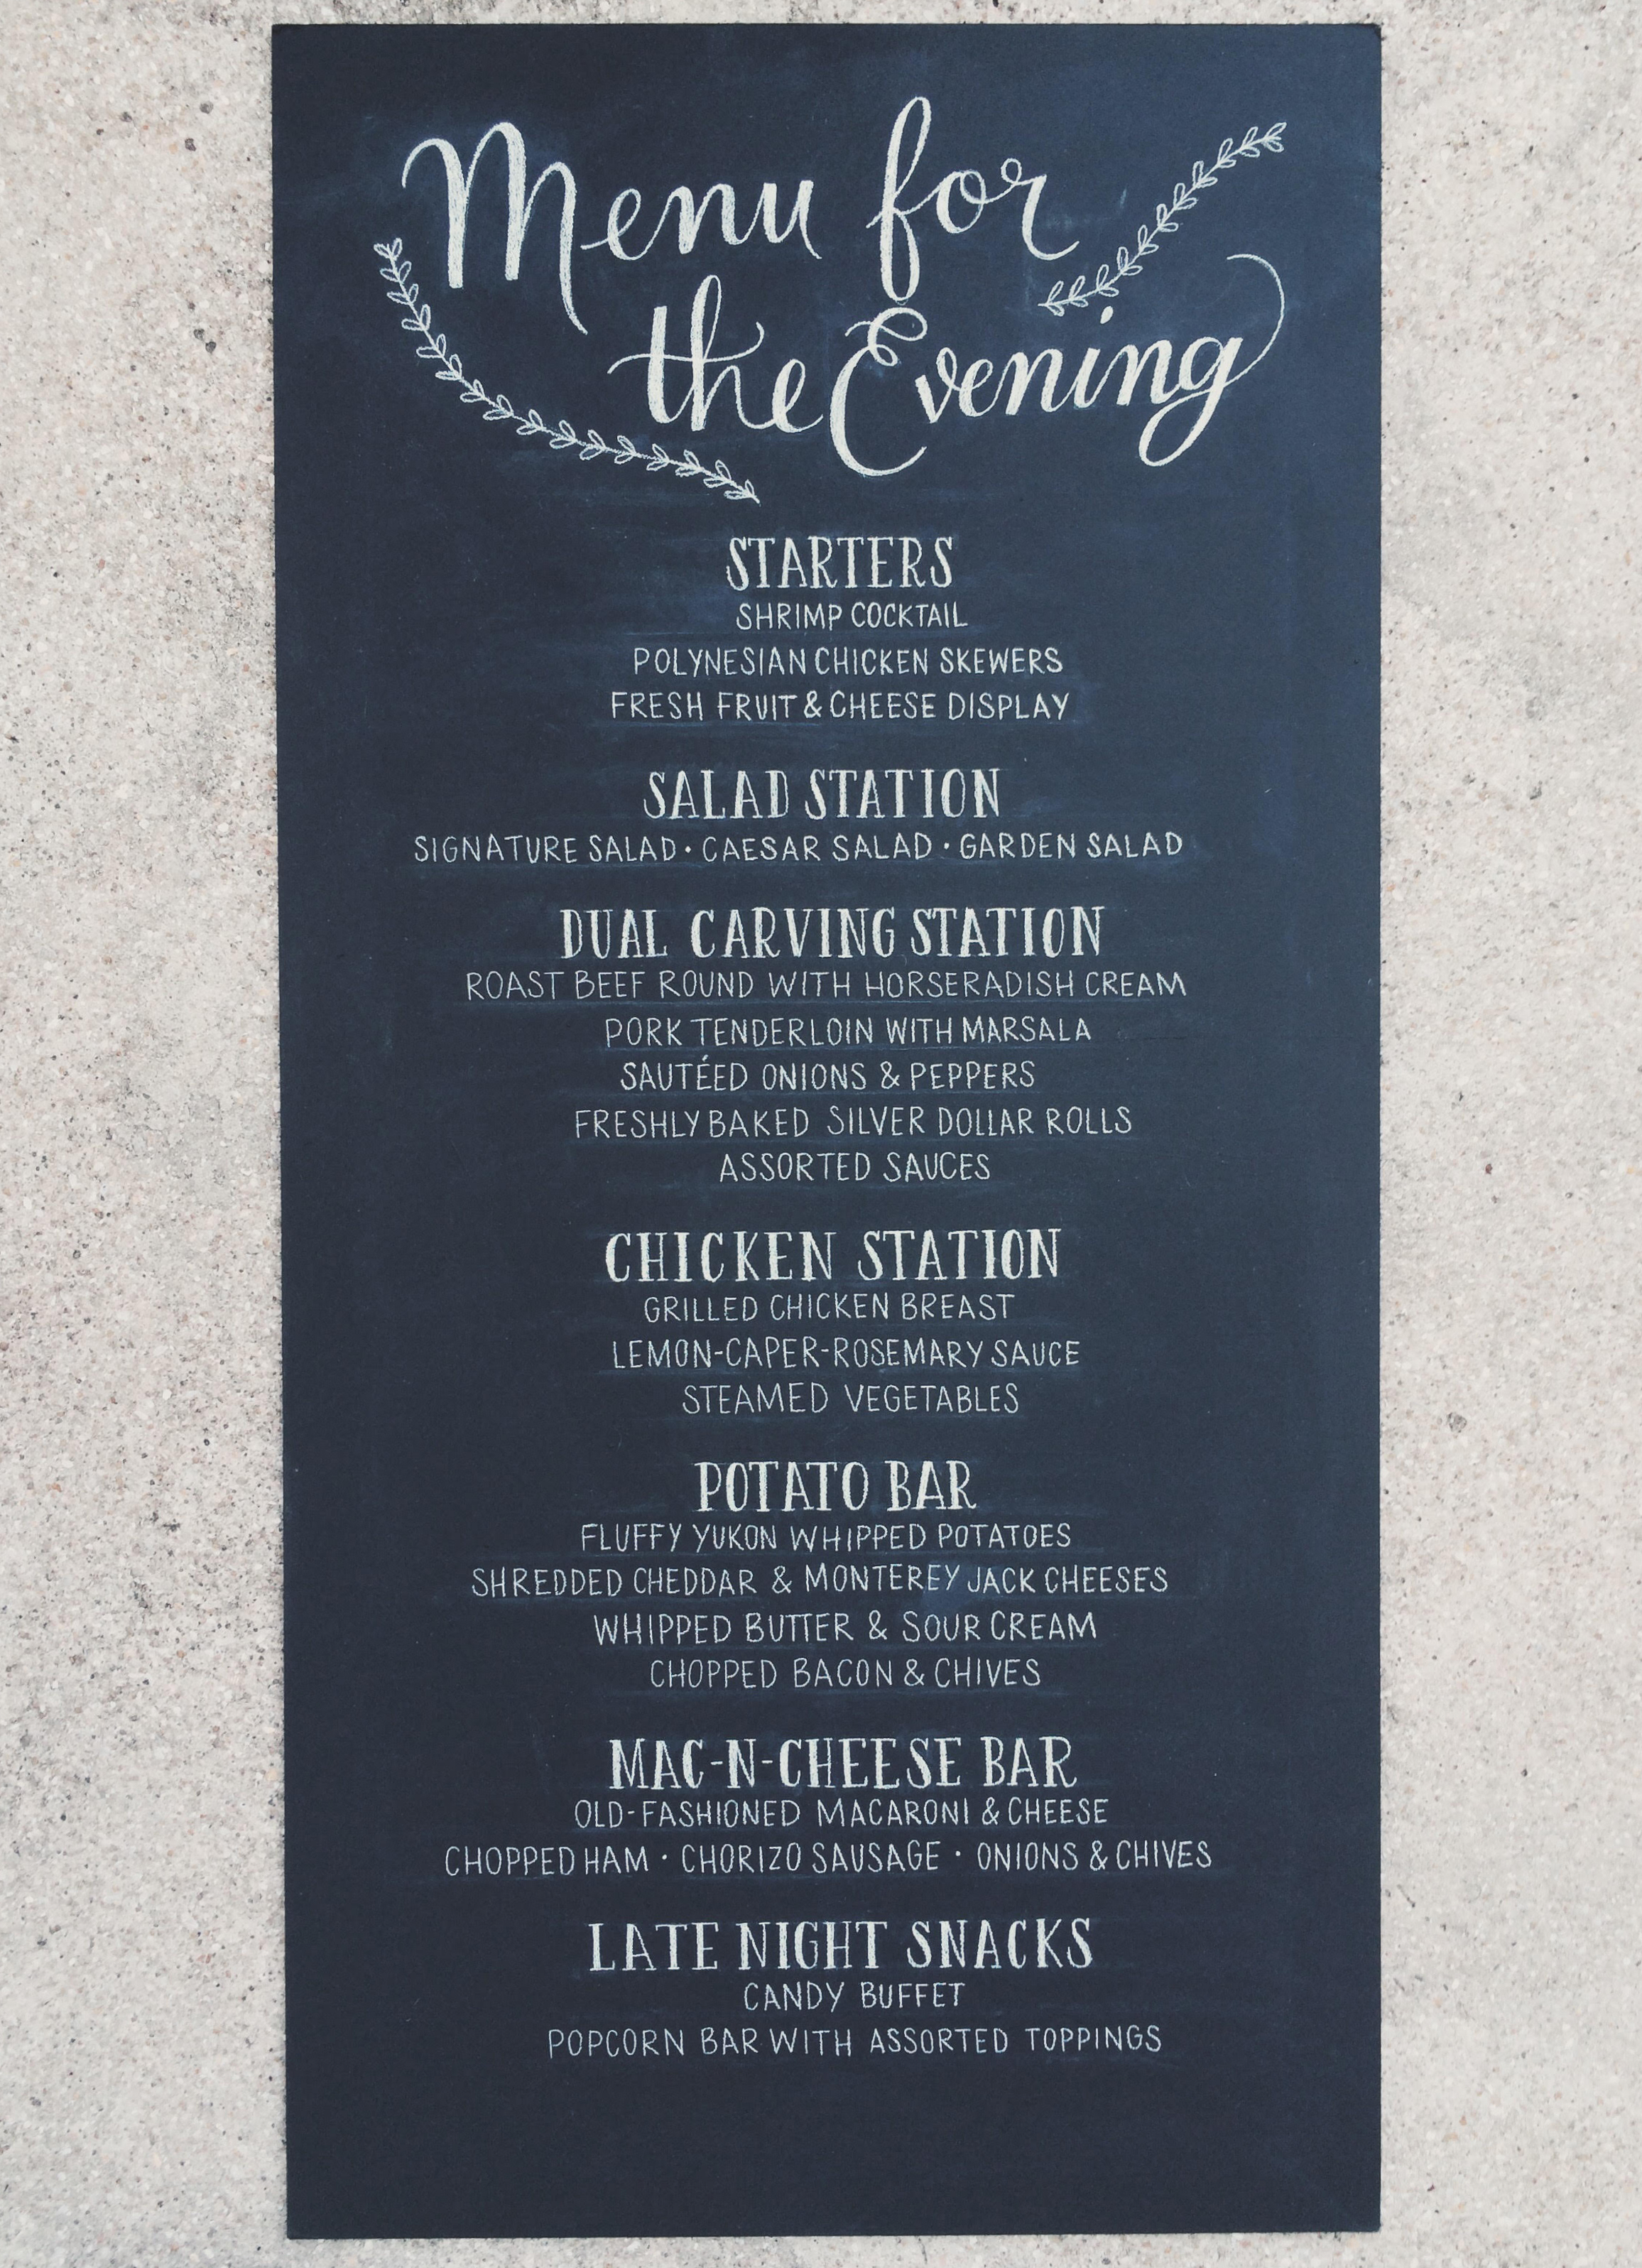 Menu for
the Evening
STARTERS
SHRIMP COCKTAIL
POLYNESIAN CHICKEN SKEWERS
FRESH FRUIT & CHEESE DISPLAY
SALAD STATION
SIGNATURE SALAD • CAESAR SALAD • GARDEN SALAD
DUAL CARVING STATION
ROAST BEEF ROUND WITH HORSERADISH CREAM
PORK TENDERLOIN WITH MARSALA
SAUTÉED ONIONS & PEPPERS
FRESHLY BAKED SILVER DOLLAR ROLLS
ASSORTED SAUCES
CHICKEN STATION
GRILLED CHICKEN BREAST
LEMON-CAPER-ROSEMARY SAUCE
STEAMED VEGETABLES
POTATO BAR
FLUFFY YUKON WHIPPED POTATOES
SHREDDED CHEDDAR & MONTEREY JACK CHEESES
WHIPPED BUTTER & SOUR CREAM
CHOPPED BACON & CHIVES
MAC-N-CHEESE BAR
OLD-FASHIONED MACARONI & CHEESE
CHOPPED HAM • CHORIZO SAUSAGE • ONIONS & CHIVES
LATE NIGHT SNACKS
CANDY BUFFET
POPCORN BAR WITH ASSORTED TOPPINGS